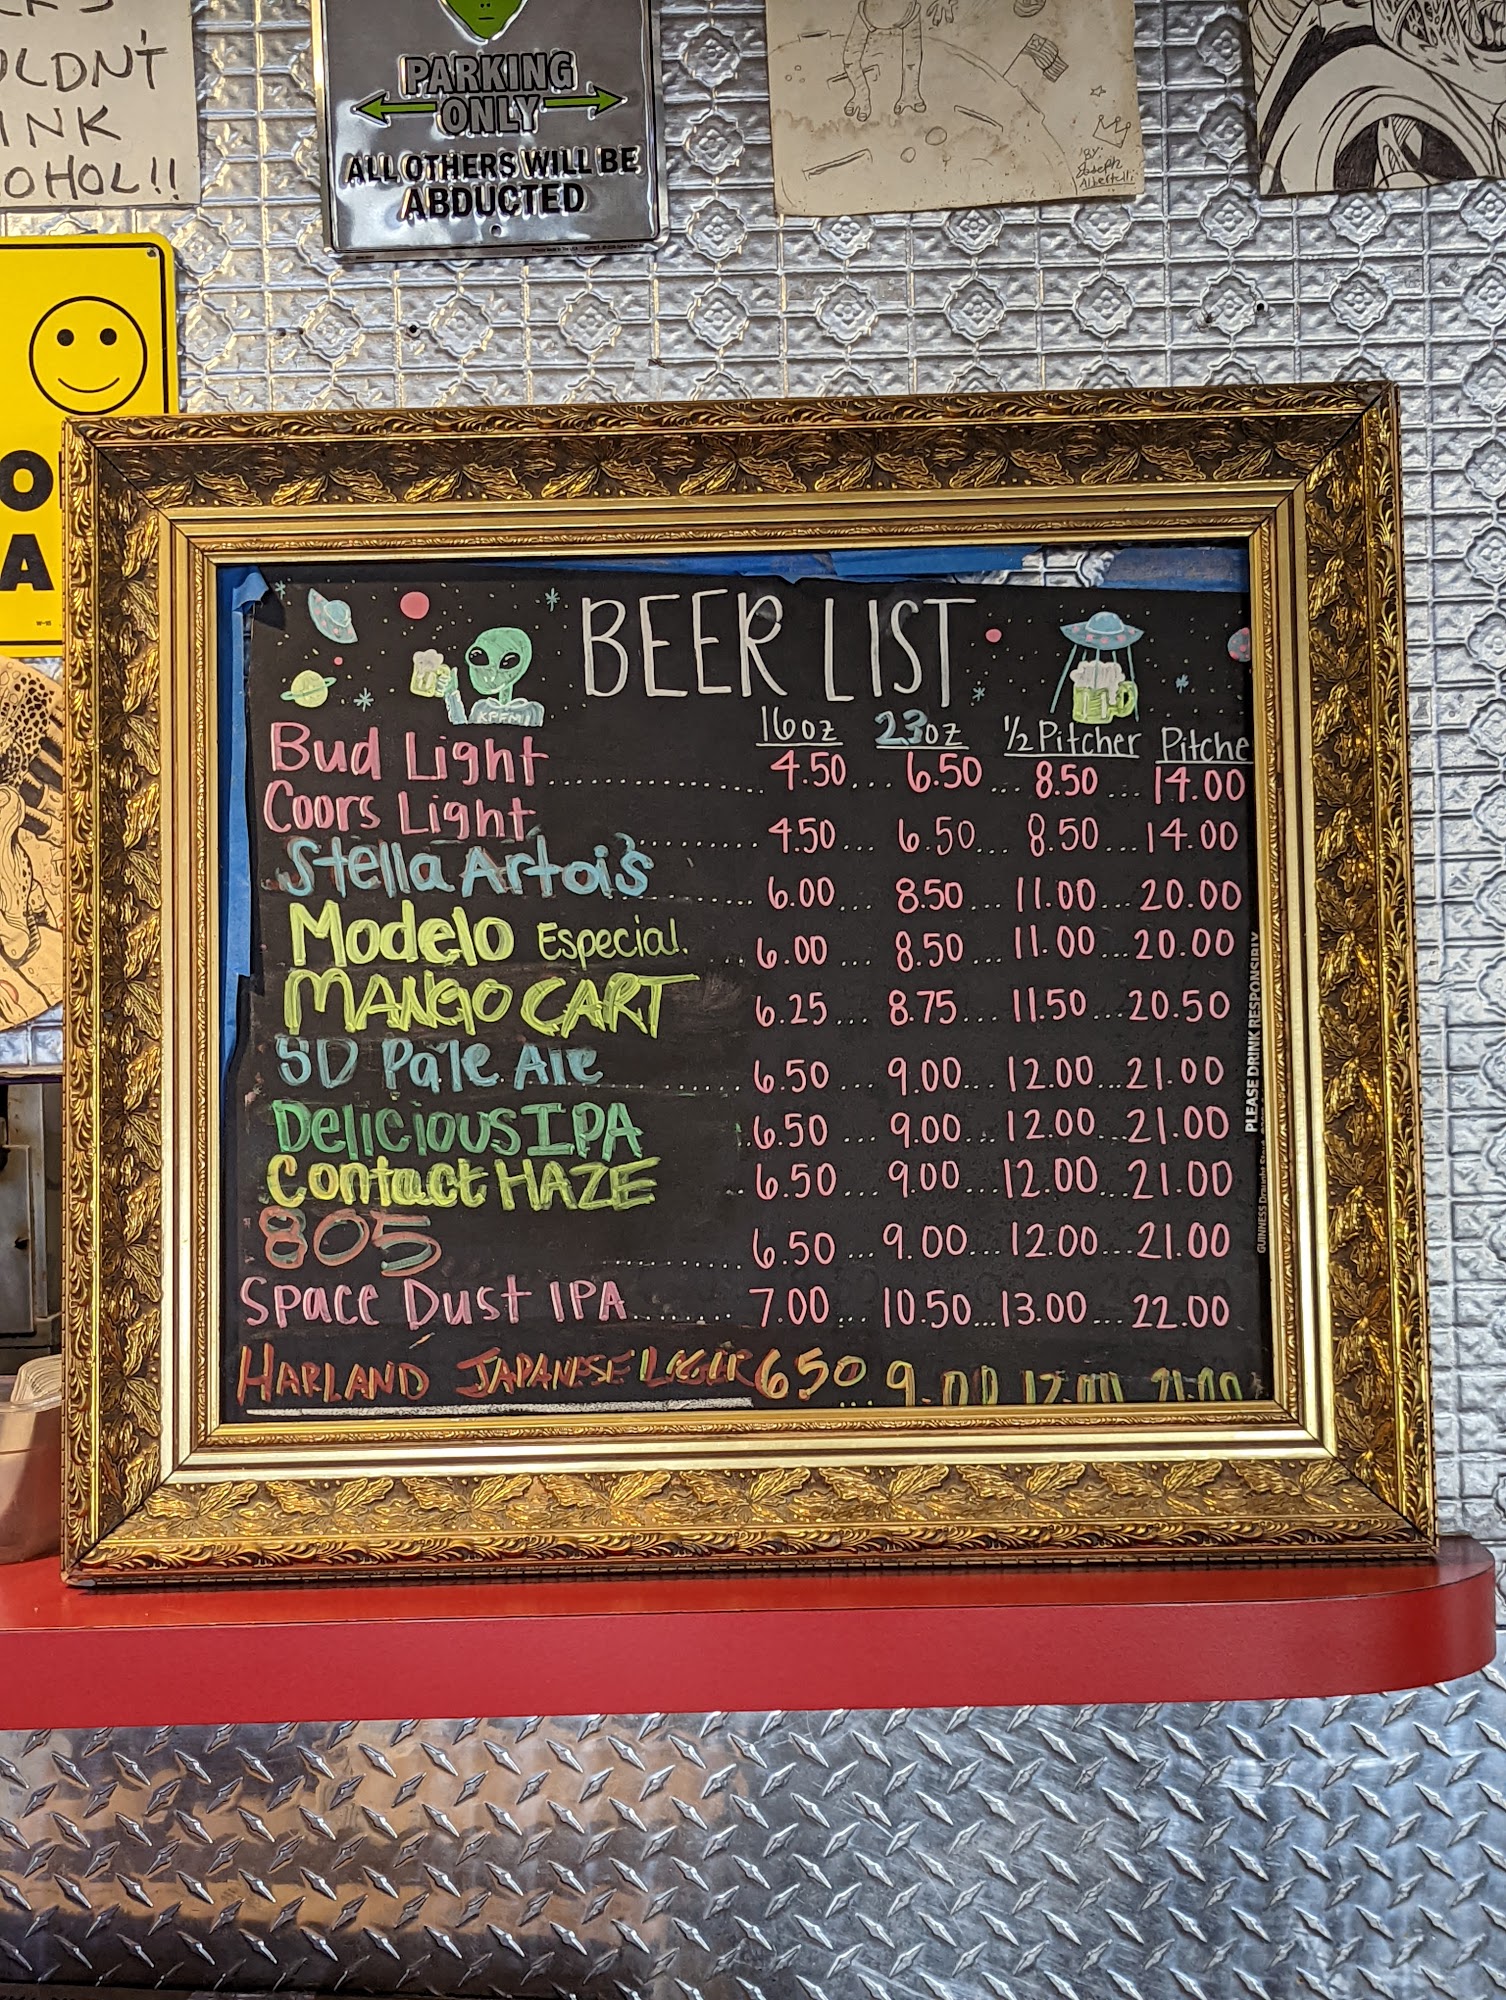 ULDN'T
INK
OHOL!!
PARKING
ONLY
ALL OTHERS WILL BE
ABDUCTED
By:
Joseph
Albertelli
O
A
W-15
BEER LIST
KPFM!
16oz 23oz 1/2 Pitcher Pitche
Bud Light.................... 4.50... 6.50... 8.50... 14.00
Coors Light......... 4.50... 6.50... 8.50... 14.00
Stella Artois...... 6.00... 8.50... 11.00... 20.00
Modelo Especial. 6.00... 8.50... 11.00... 20.00
MANGO CART 6.25... 8.75... 11.50... 20.50
SD Pale Ale........ 6.50... 9.00... 12.00... 21.00
Delicious IPA 6.50... 9.00... 12.00... 21.00
Contact HAZE 6.50... 9.00... 12.00... 21.00
805......... 6.50... 9.00... 12.00... 21.00
Space Dust IPA....... 7.00... 10.50... 13.00... 22.00
HARLAND JAPANESE LAGER 650... 9.00 12.00 21.00
PLEASE DRINK RESPONSIBLY
GUINNESS Draught